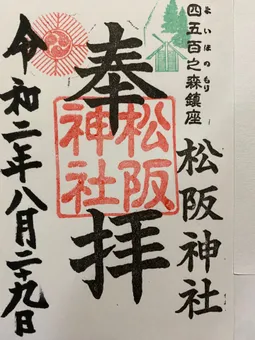 四五百之森鎮座
よいほのもり
松阪神社
奉拝
松阪神社
令和二年八月二十九日